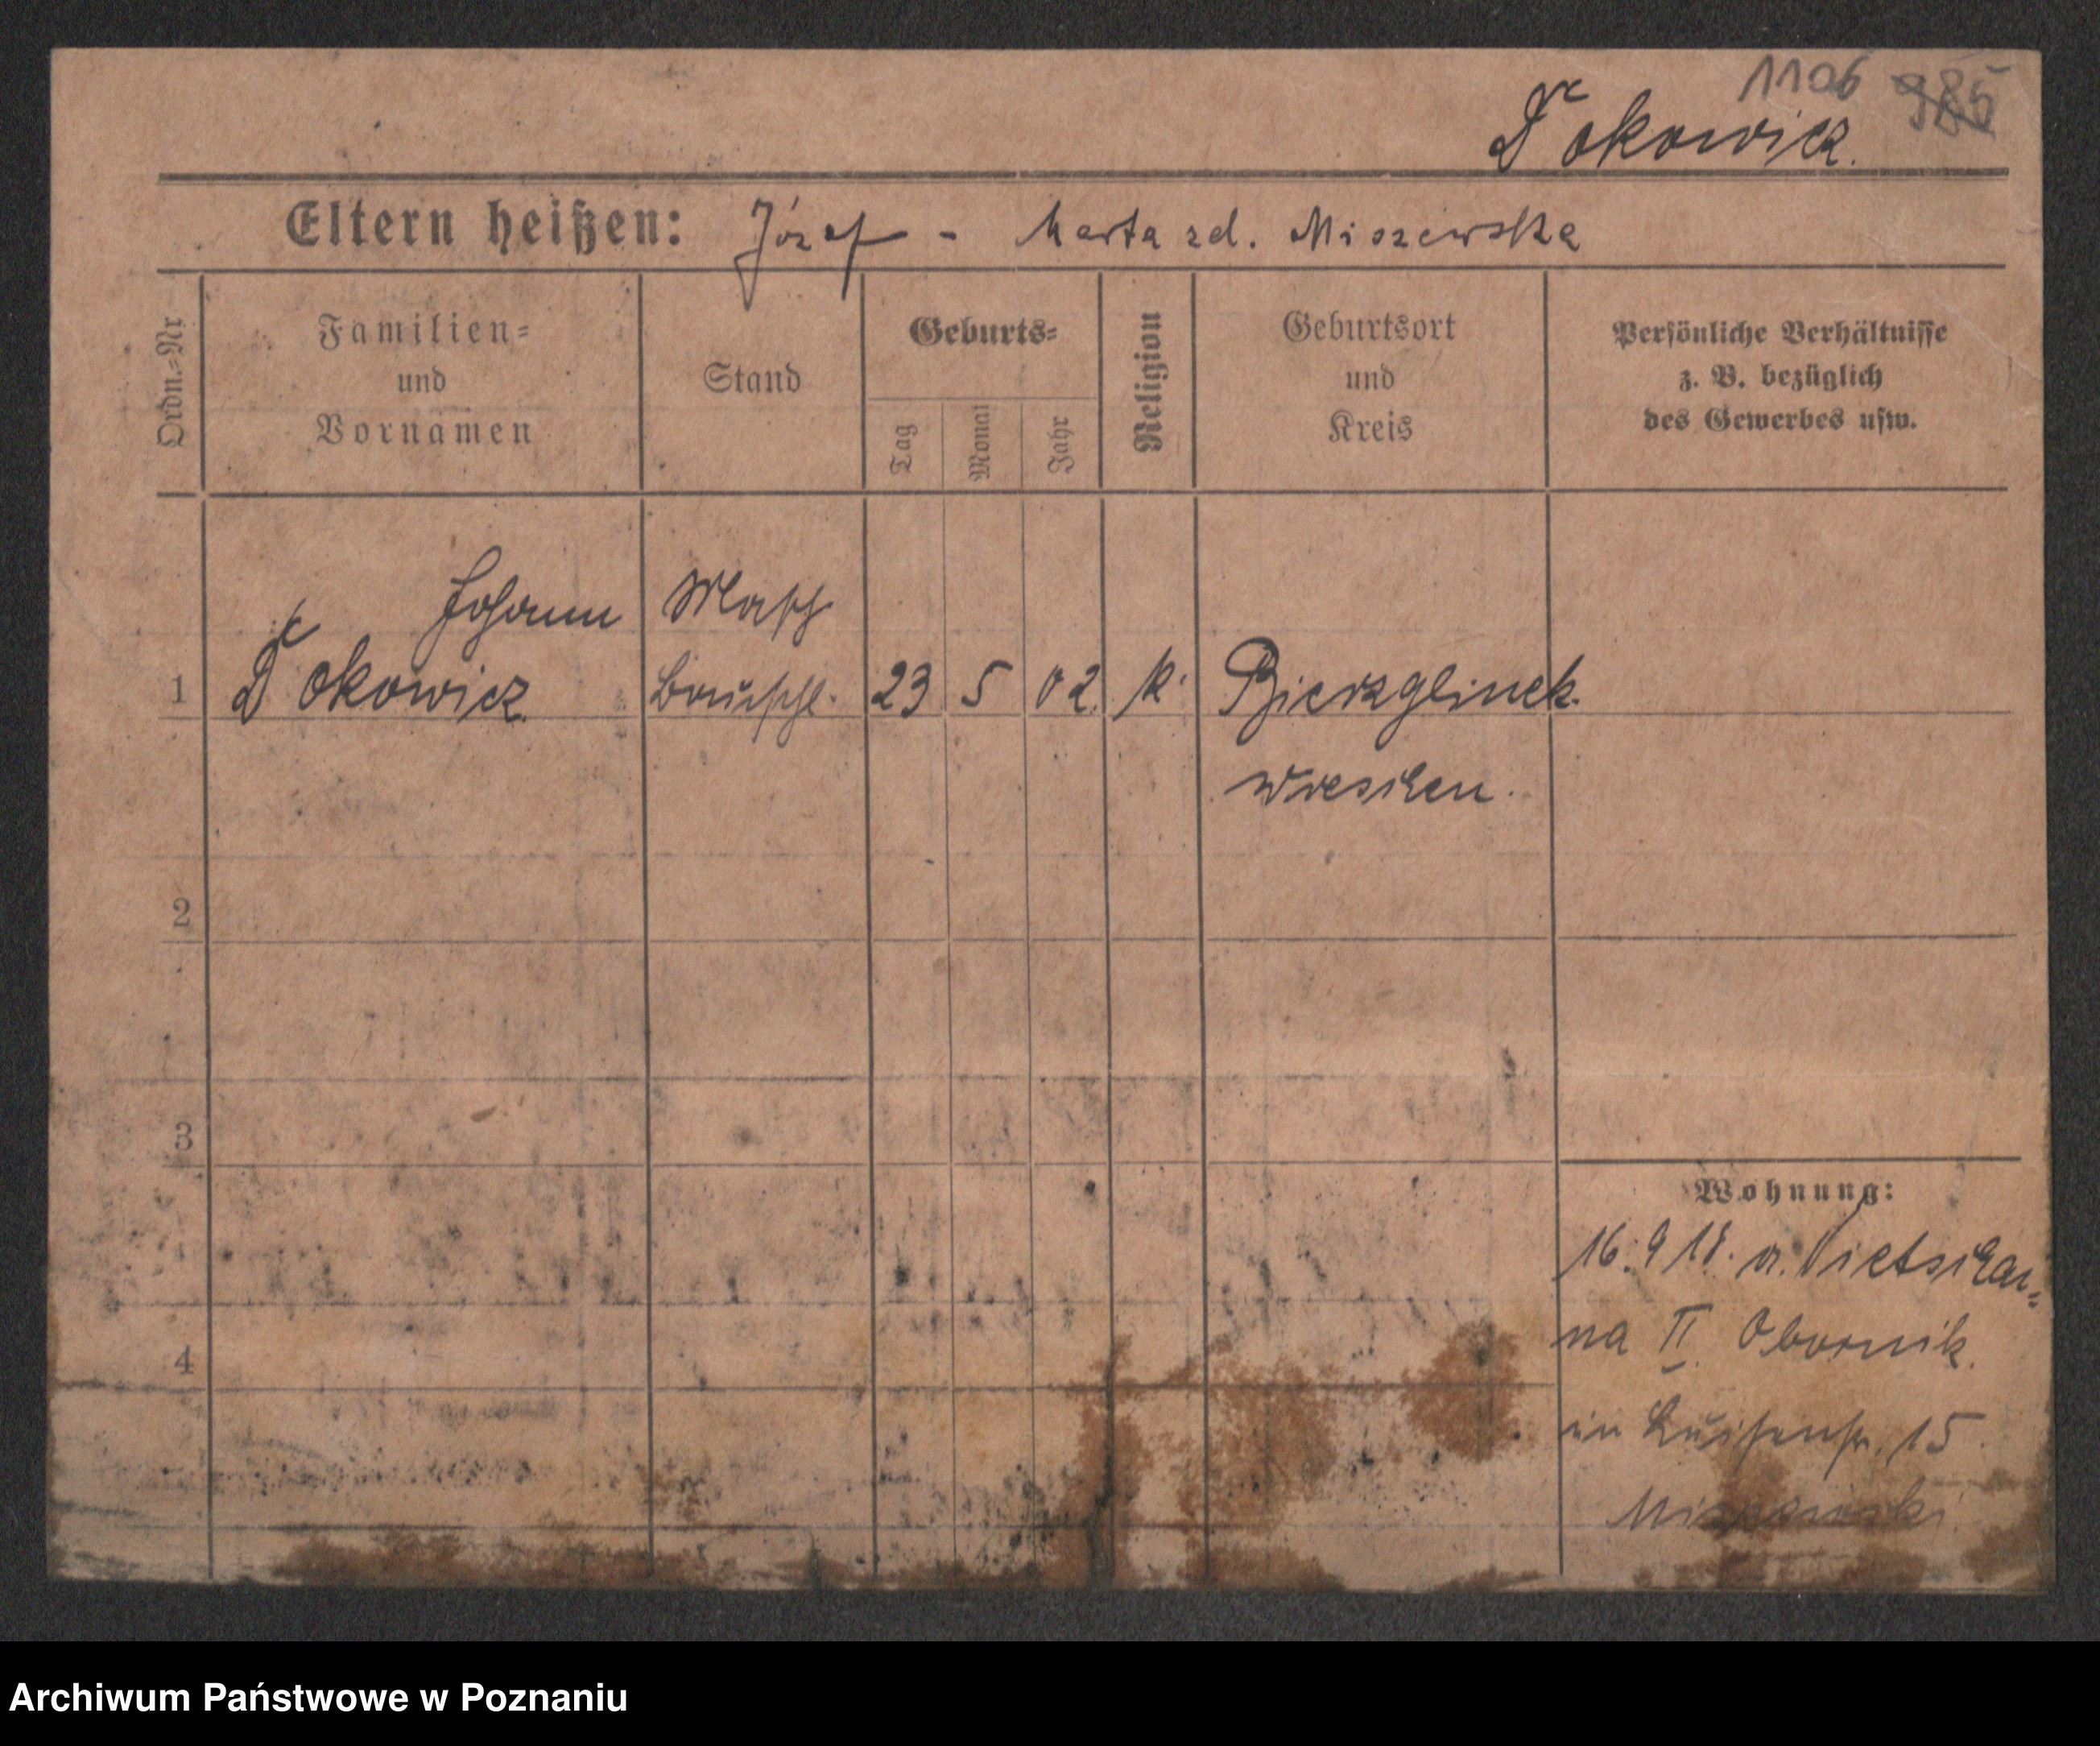 1106 985
Dokowicz.
Eltern heißen: Józef - Marta zd. Miszewska
Ordn.-Nr
Familien-
und
Vornamen
Stand
Geburts-
Tag
Monat
Jahr
Religion
Geburtsort
und
Kreis
Persönliche Verhältnisse
z. B. bezüglich
des Gewerbes usw.
Johann
Masch
1 Dokowicz 23 5 02 k. Bierzglinek.
Wreschen.
2
3
4
Wohnung:
16. 9 18. a.
na II. Obornik.
in Luisenstr. 15
Miszewski
Archiwum Państwowe w Poznaniu